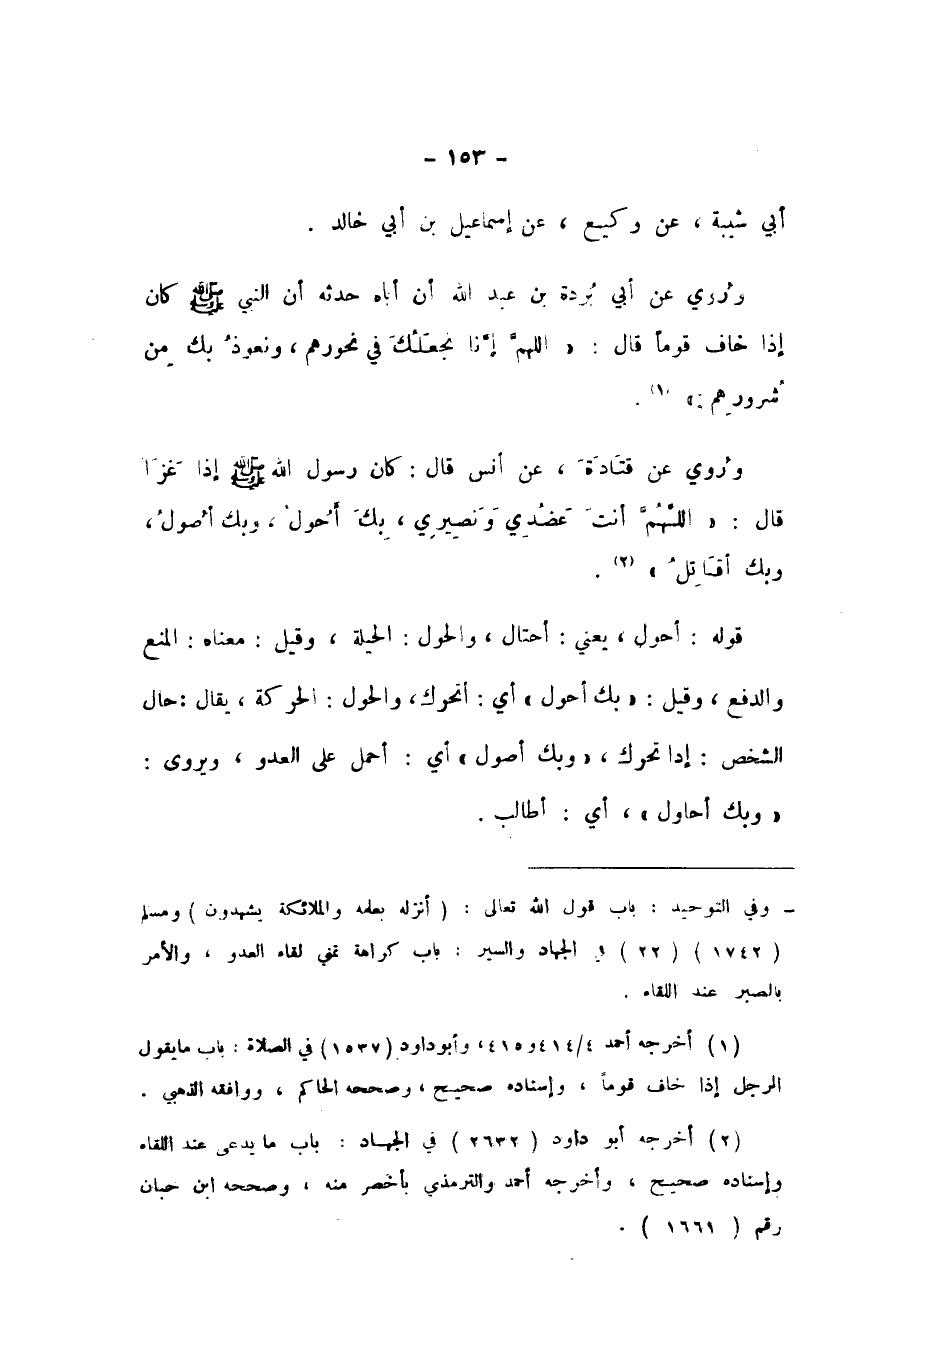 - ١٥٣ -
أبي شيبة ، عن وكيع ، عن إسماعيل بن أبي خالد .
ورُوي عن أبي بُردة بن عبد الله أن أباه حدثه أن النبي ﷺ كان
إذا خاف قوماً قال : « اللهمَّ إنَّا نجعَلُكَ في نحورهم ، ونعوذُ بك مِن
شُرورِهم » (١) .
ورُوي عن قتَادَةَ ، عن أنس قال : كان رسول الله ﷺ إذا غَزَا
قال : « اللَّهُمَّ أنتَ عَضُدِي وَنَصِيرِي ، بِكَ أَحُولُ ، وبك أصولُ ،
وبك أقَاتِلُ » (٢) .
قوله : أحول ، يعني : أحتال ، والحول : الحيلة ، وقيل : معناه : المنع
والدفع ، وقيل : « بك أحول » أي : أتحرك ، والحول : الحركة ، يقال : حال
الشخص : إذا تحرك ، « وبك أصول » أي : أحمل على العدو ، ويروى :
« وبك أحاول » ، أي : أطالب .
- وفي التوحيد : باب قول الله تعالى : ( أنزله بعلمه والملائكة يشهدون ) ومسلم
( ١٧٤٢ ) ( ٢٢ ) في الجهاد والسير : باب كراهة تمني لقاء العدو ، والأمر
بالصبر عند اللقاء .
(١) أخرجه أحمد ٤١٤/٤ و٤١٥ ، وأبو داود (١٥٣٧) في الصلاة : باب مايقول
الرجل إذا خاف قوماً ، وإسناده صحيح ، وصححه الحاكم ، ووافقه الذهبي .
(٢) أخرجه أبو داود ( ٢٦٣٢ ) في الجهاد : باب ما يدعى عند اللقاء
وإسناده صحيح ، وأخرجه أحمد والترمذي بأخصر منه ، وصححه ابن حبان
رقم ( ١٦٦١ ) .